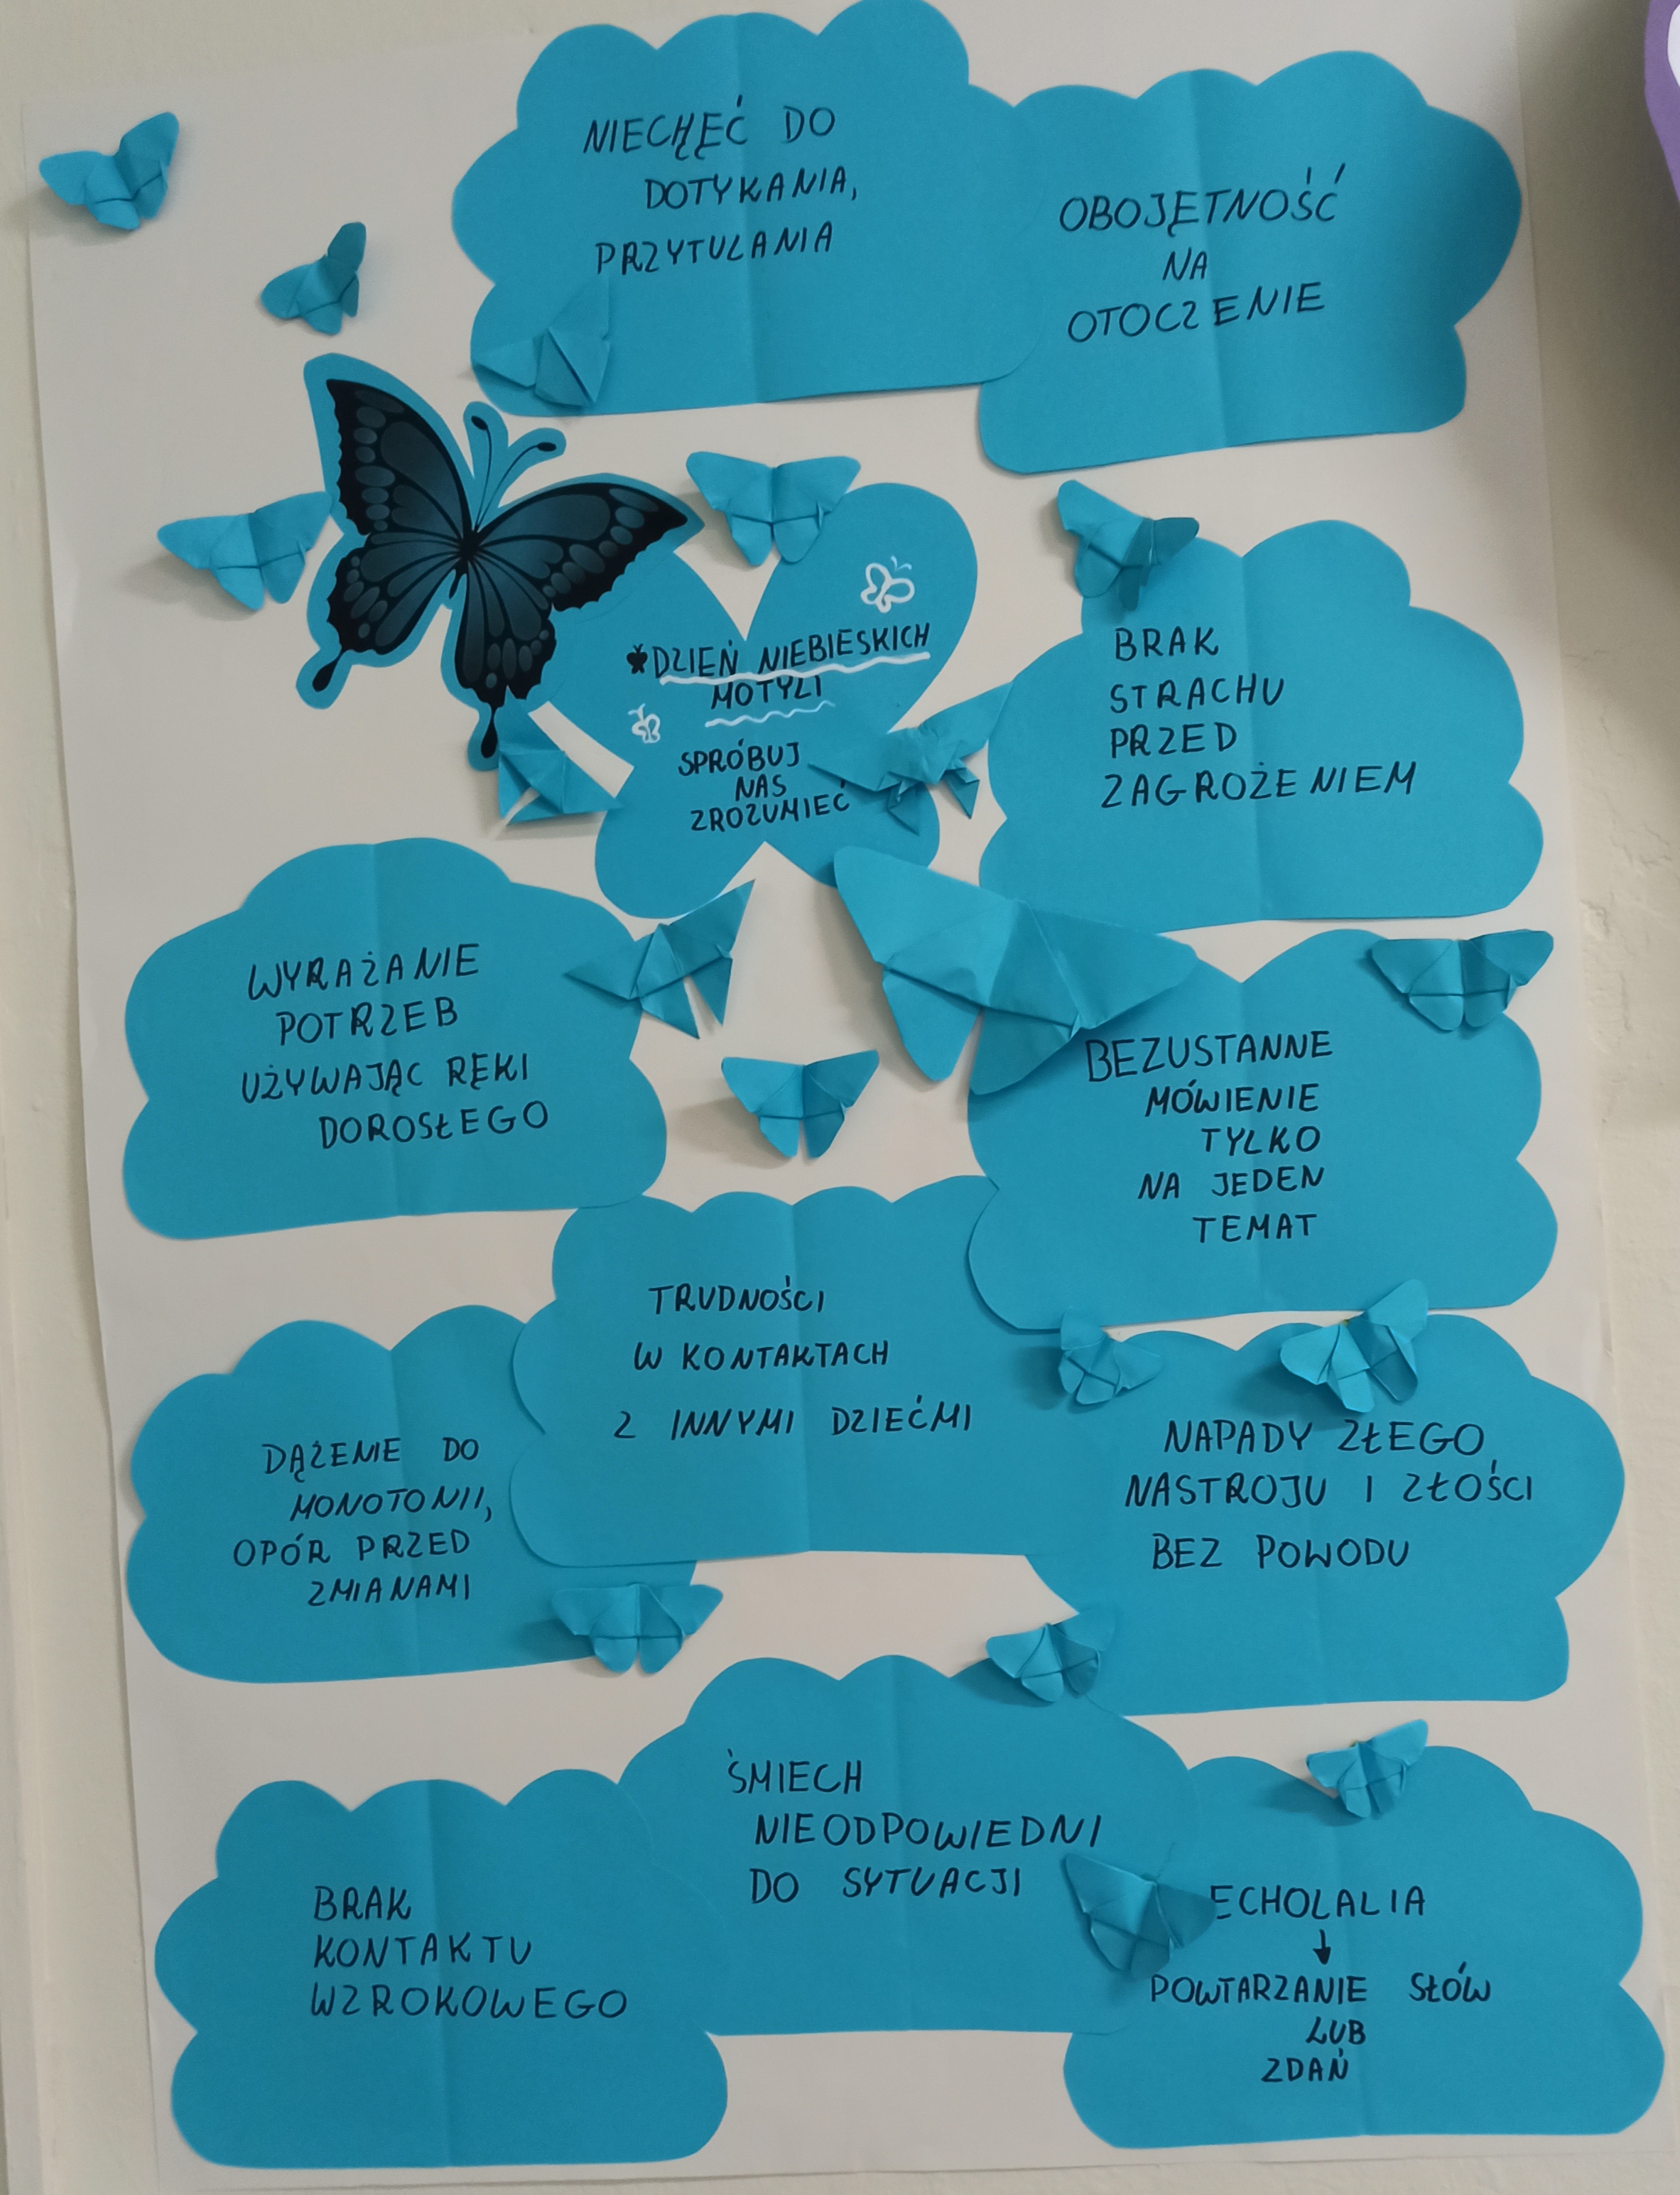 NIECHĘĆ DO
DOTYKANIA,
PRZYTULANIA
OBOJĘTNOŚĆ
NA
OTOCZENIE
DZIEŃ NIEBIESKICH
MOTYLI
SPRÓBUJ
NAS
ZROZUMIEĆ
BRAK
STRACHU
PRZED
ZAGROŻENIEM
WYRAŻANIE
POTRZEB
UŻYWAJĄC RĘKI
DOROSŁEGO
BEZUSTANNE
MÓWIENIE
TYLKO
NA JEDEN
TEMAT
TRUDNOŚCI
W KONTAKTACH
Z INNYMI DZIEĆMI
DĄŻENIE DO
MONOTONII,
OPÓR PRZED
ZMIANAMI
NAPADY ZŁEGO
NASTROJU I ZŁOŚCI
BEZ POWODU
ŚMIECH
NIEODPOWIEDNI
DO SYTUACJI
BRAK
KONTAKTU
WZROKOWEGO
ECHOLALIA
↓
POWTARZANIE SŁÓW
LUB
ZDAŃ